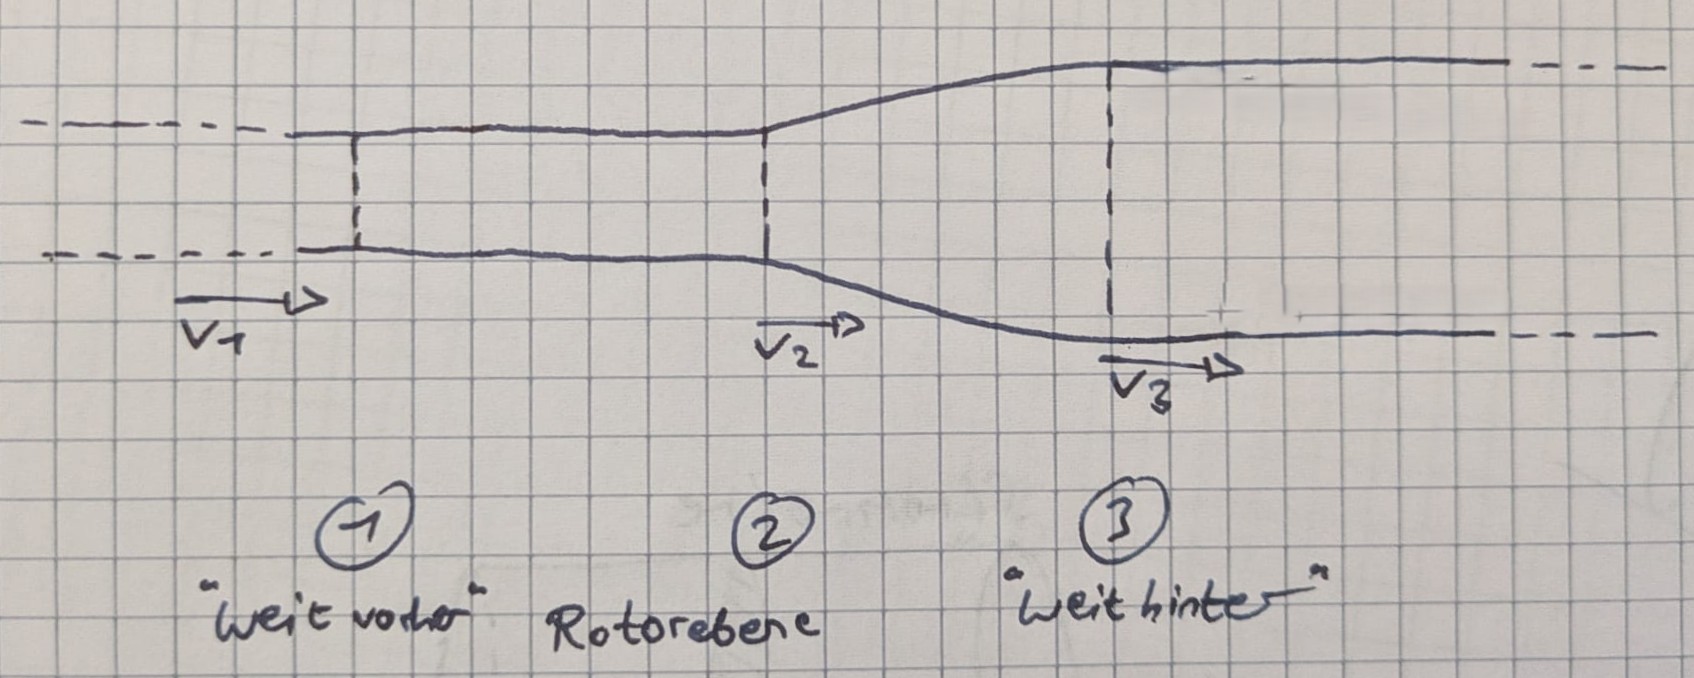 V1
V2
V3
1 2 3
"weit vorher" Rotorebene "weit hinter"